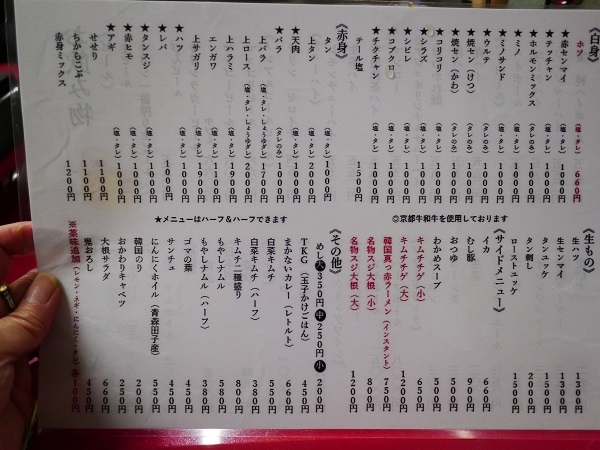 《白身》
ホソ（塩・タレ）660円
★赤センマイ（塩・タレ）1000円
★テッチャン（塩・タレ）1000円
★ホルモンミックス（タレのみ）1000円
★ミノ（塩・タレ）1000円
★ミノサンド（塩・タレ）1000円
★ウルテ（塩・タレ）1000円
★焼セン（けつ）（タレのみ）1000円
★焼セン（かわ）（タレのみ）1000円
★コリコリ（塩・タレ）1000円
★シラズ（塩・タレ）1000円
★シビレ（塩・タレ）1000円
★コブクロ（塩・タレ）1000円
★チクチャン（塩・タレ）1000円
テール塩 1500円
《赤身》
タン（塩・タレ）1000円
上タン（塩・タレ）2000円
★天肉（塩・タレ）1000円
★バラ（タレのみ）1000円
上バラ（塩・タレ・しょうゆダレ）1700円
上ロース（塩・タレ・しょうゆダレ）2000円
上ハラミ（塩・タレ）1900円
エンガワ（塩・タレ）1100円
上サガリ（塩・タレ）1000円
★ハツ（塩・タレ）1000円
★レバ 1000円
★タンスジ（塩・タレ）1000円
★赤ヒモ（塩・タレ）1000円
★アギ（塩・タレ）1000円
せせり 1100円
ちからこぶ 1100円
赤身ミックス 1200円
◎京都牛和牛を使用しております
★メニューはハーフ＆ハーフできます
《生もの》
生ハツ 1300円
生センマイ 1300円
タンユッケ 1500円
タン刺し 2000円
ローストユッケ 1500円
《サイドメニュー》
イカ 660円
むし豚 900円
おつゆ 500円
わかめスープ 500円
キムチチゲ（小）650円
キムチチゲ（大）1200円
韓国真っ赤ラーメン（インスタント）750円
名物スジ大根（小）800円
名物スジ大根（大）1200円
《その他》
めし 大 350円 中 250円 小 200円
TKG（玉子かけごはん）450円
まかないカレー（レトルト）660円
白菜キムチ 550円
白菜キムチ（ハーフ）300円
キムチ二種盛り 800円
もやしナムル 580円
もやしナムル（ハーフ）300円
ゴマの葉 450円
サンチュ 450円
にんにくホイル（青森田子産）550円
韓国のり 250円
おかわりキャベツ 200円
大根サラダ 660円
鬼おろし 450円
※薬味追加（レモン・ネギ・にんにく・タレ）各100円